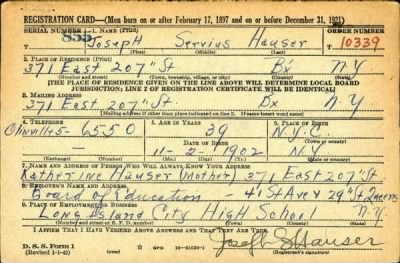 REGISTRATION CARD—(Men born on or after February 17, 1897 and on or before December 31, 1921)
SERIAL NUMBER 1. NAME (Print) ORDER NUMBER
855 Joseph Servius Hauser 10339
(First) (Middle) (Last)
2. PLACE OF RESIDENCE (Print)
371 East 207th St Bx N Y
(Number and street) (Town, township, village, or city) (County) (State)
[THE PLACE OF RESIDENCE GIVEN ON THE LINE ABOVE WILL DETERMINE LOCAL BOARD
JURISDICTION; LINE 2 OF REGISTRATION CERTIFICATE WILL BE IDENTICAL]
3. MAILING ADDRESS
371 East 207th St. Bx N Y
(Mailing address if other than place indicated on line 2. If same insert word same)
4. TELEPHONE 5. AGE IN YEARS 6. PLACE OF BIRTH
Olinville 5-6550 39 N.Y.C.
DATE OF BIRTH (Town or county)
11-2-1902 N.Y
(Exchange) (Number) (Mo.) (Day) (Yr.) (State or country)
7. NAME AND ADDRESS OF PERSON WHO WILL ALWAYS KNOW YOUR ADDRESS
Katherine Hauser (Mother) 371 East 207th St
8. EMPLOYER'S NAME AND ADDRESS
Board of Education - 41st Ave & 29th St Queens
9. PLACE OF EMPLOYMENT OR BUSINESS
Long Island City High School N.Y.
(Number and street or R. F. D. number) (Town) (County) (State)
I AFFIRM THAT I HAVE VERIFIED ABOVE ANSWERS AND THAT THEY ARE TRUE.
D. S. S. Form 1
(Revised 1-1-42) (over) GPO Joseph S Hauser